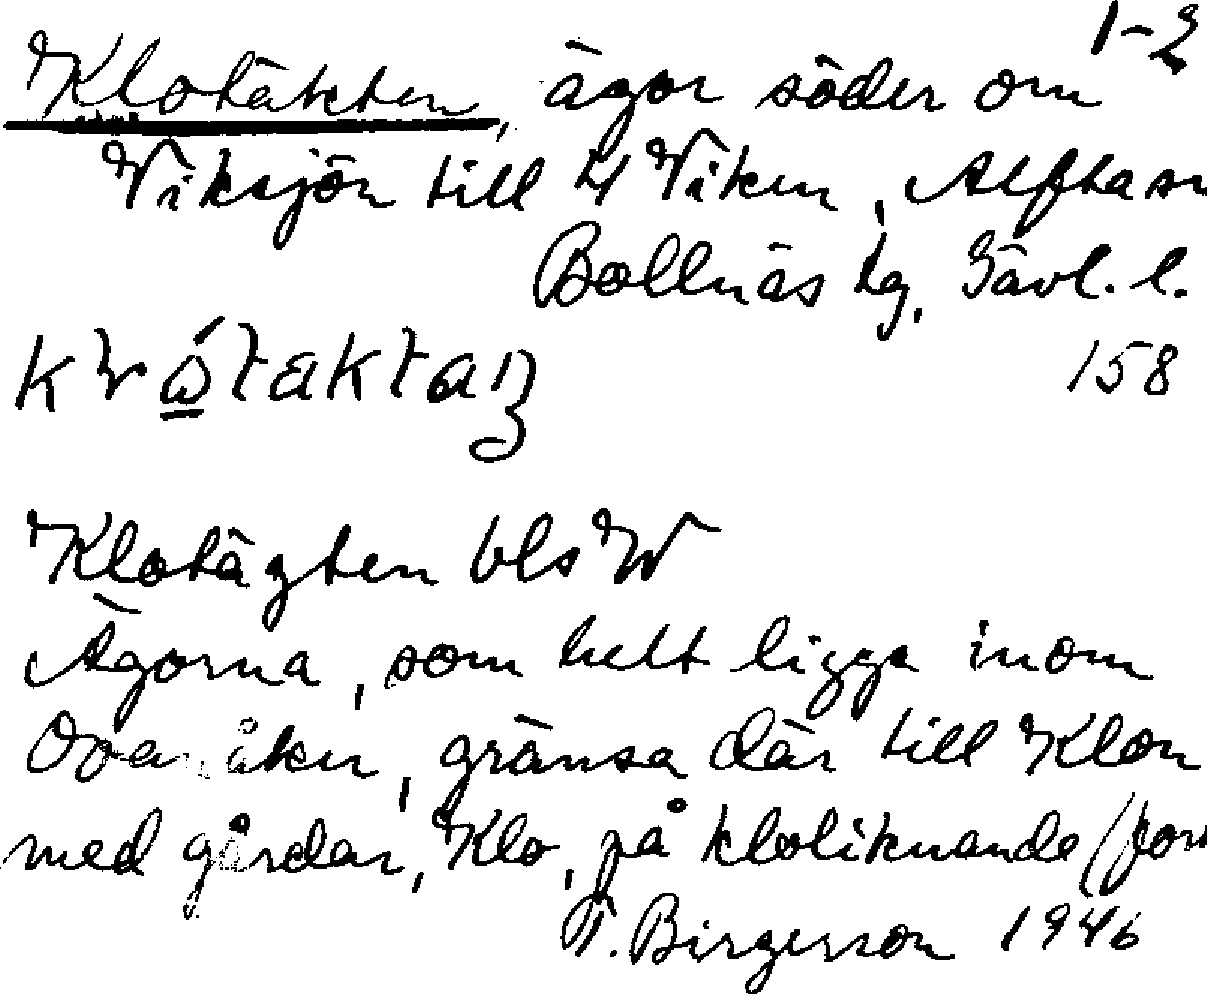 1-2
Klotäkten, ägor söder om
Viksjön till 4 Viken, Alfta sn
Bollnäs tg, Gävl. l.
158
Klotägten bls W
Ägorna, som helt ligga inom
Ovanåker, gränsa där till Klon
med gårdar, Klo, på kloliknande (for
T. Birgersson 1946